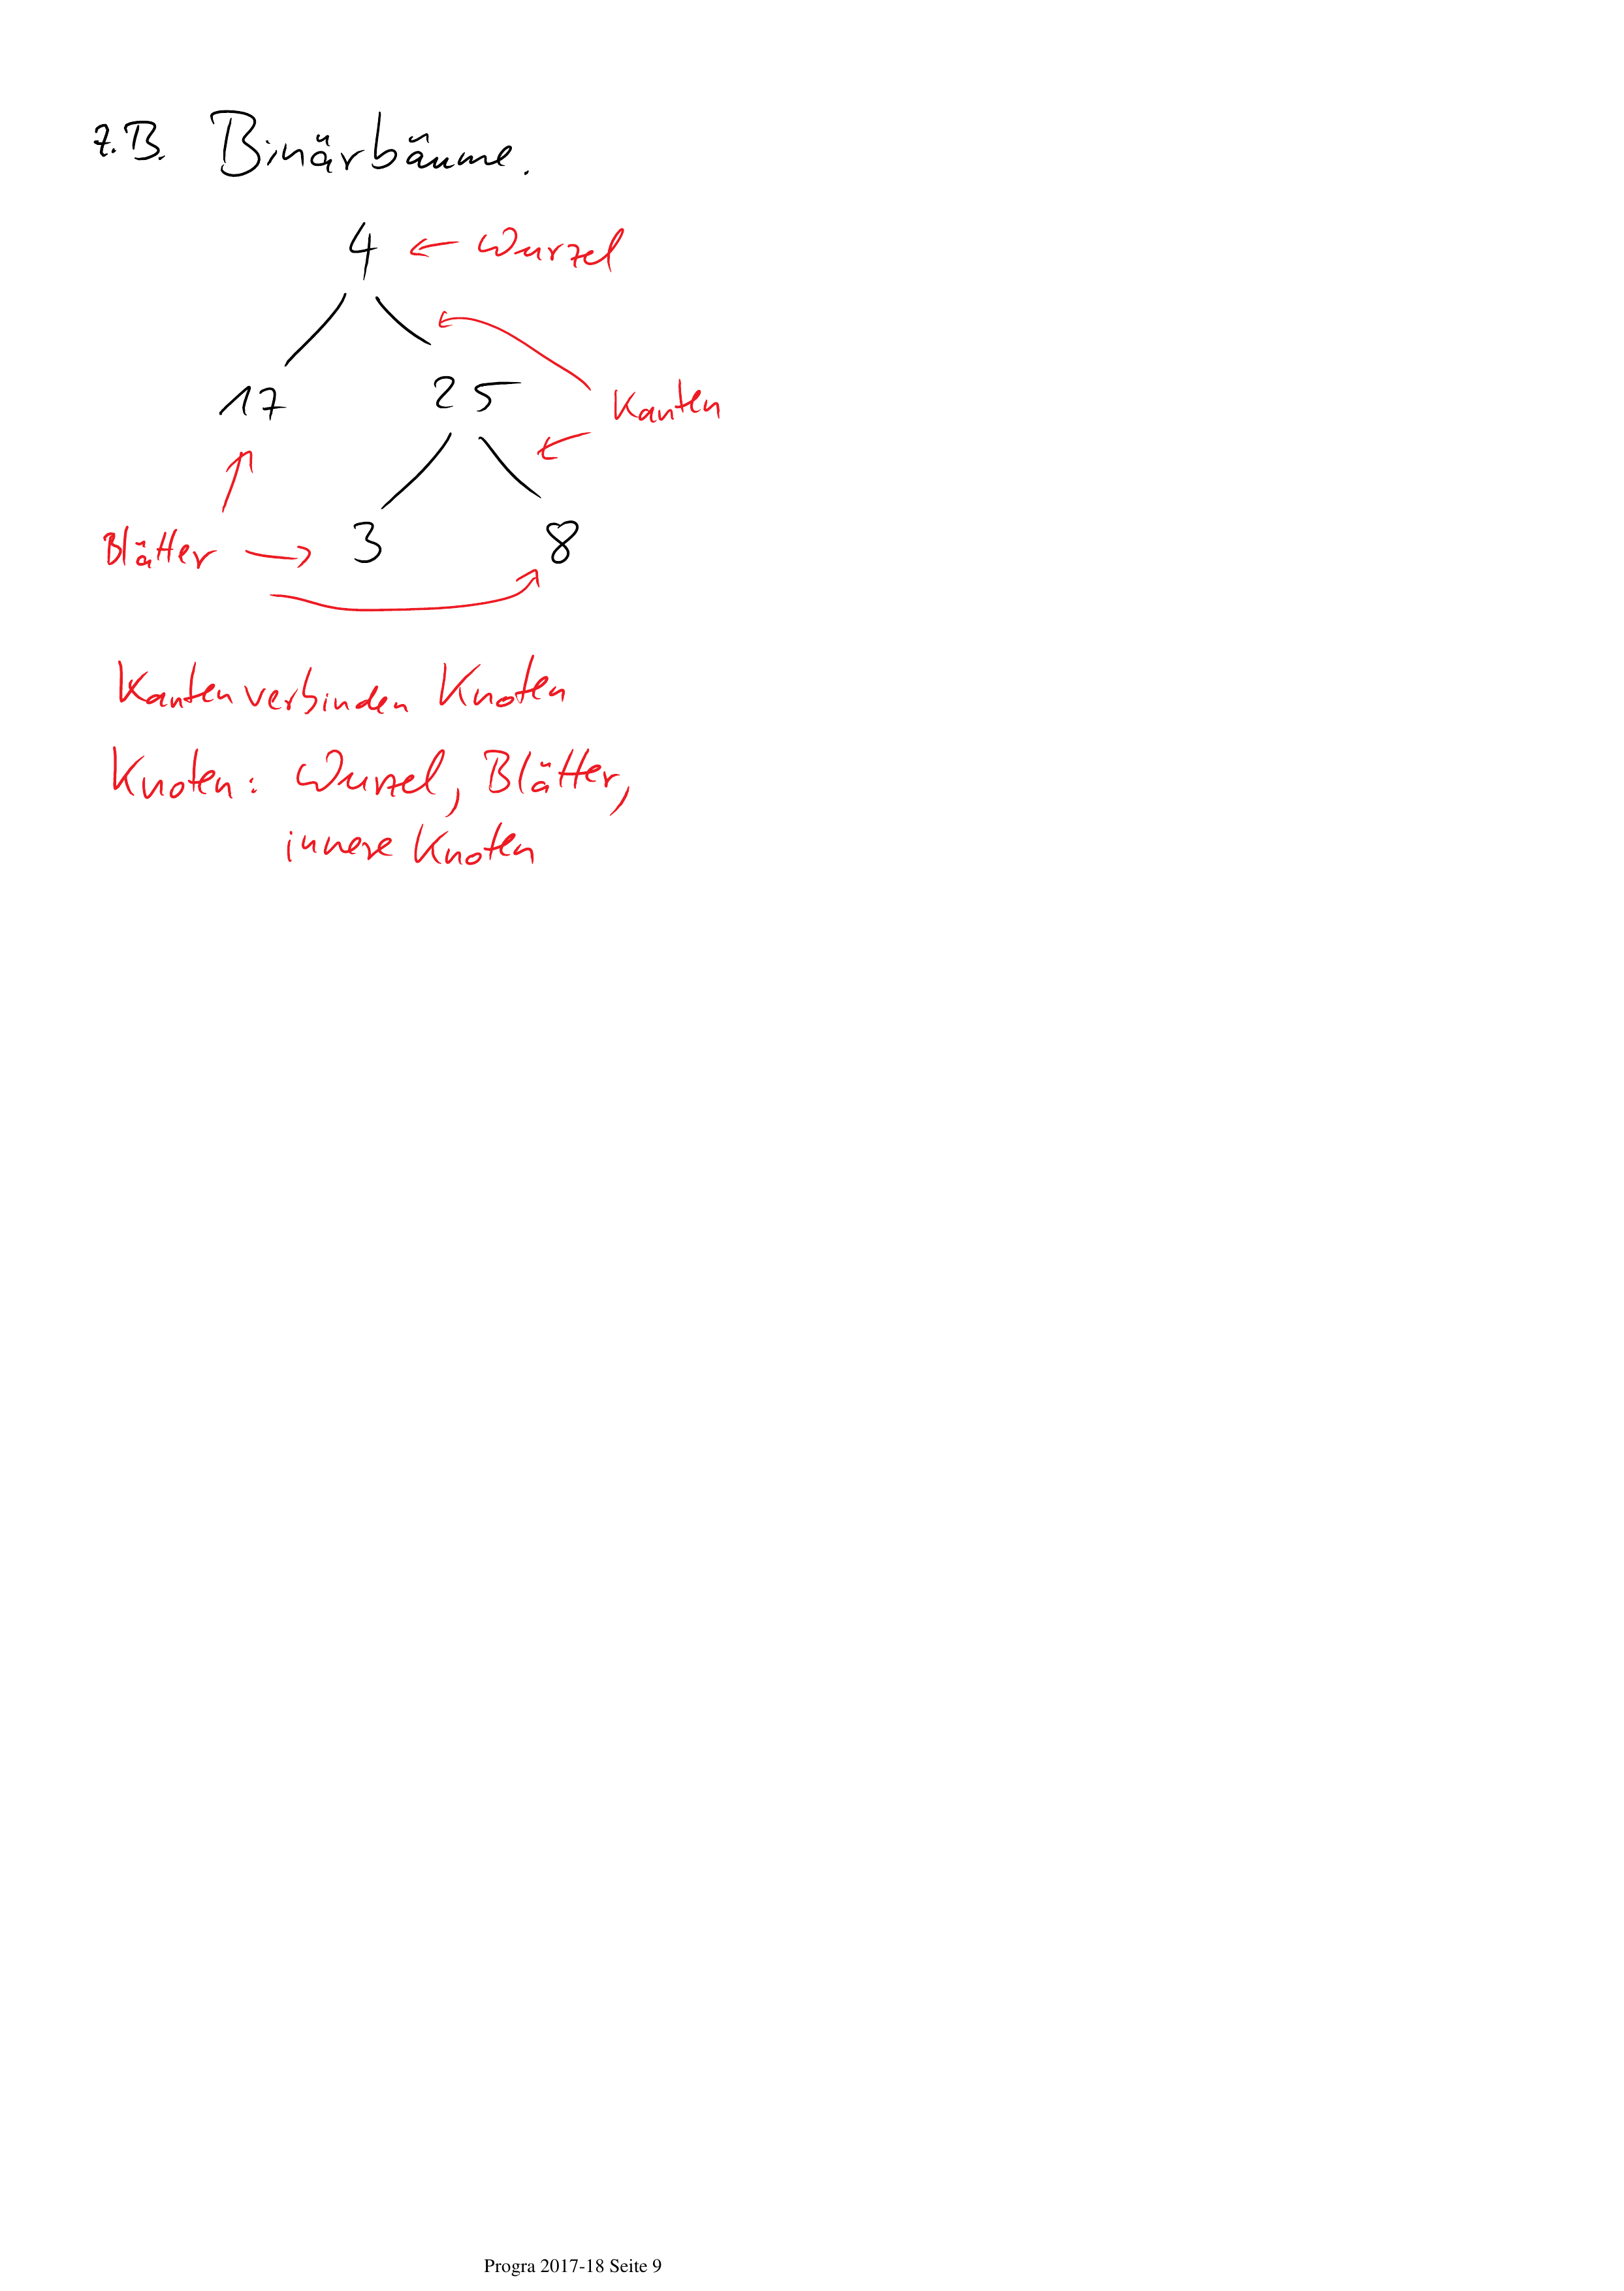 z.B. Binärbäume.
4 ← Wurzel
17 25
Kanten
Blätter → 3 8
Kanten verbinden Knoten
Knoten: Wurzel, Blätter,
innere Knoten
Progra 2017-18 Seite 9